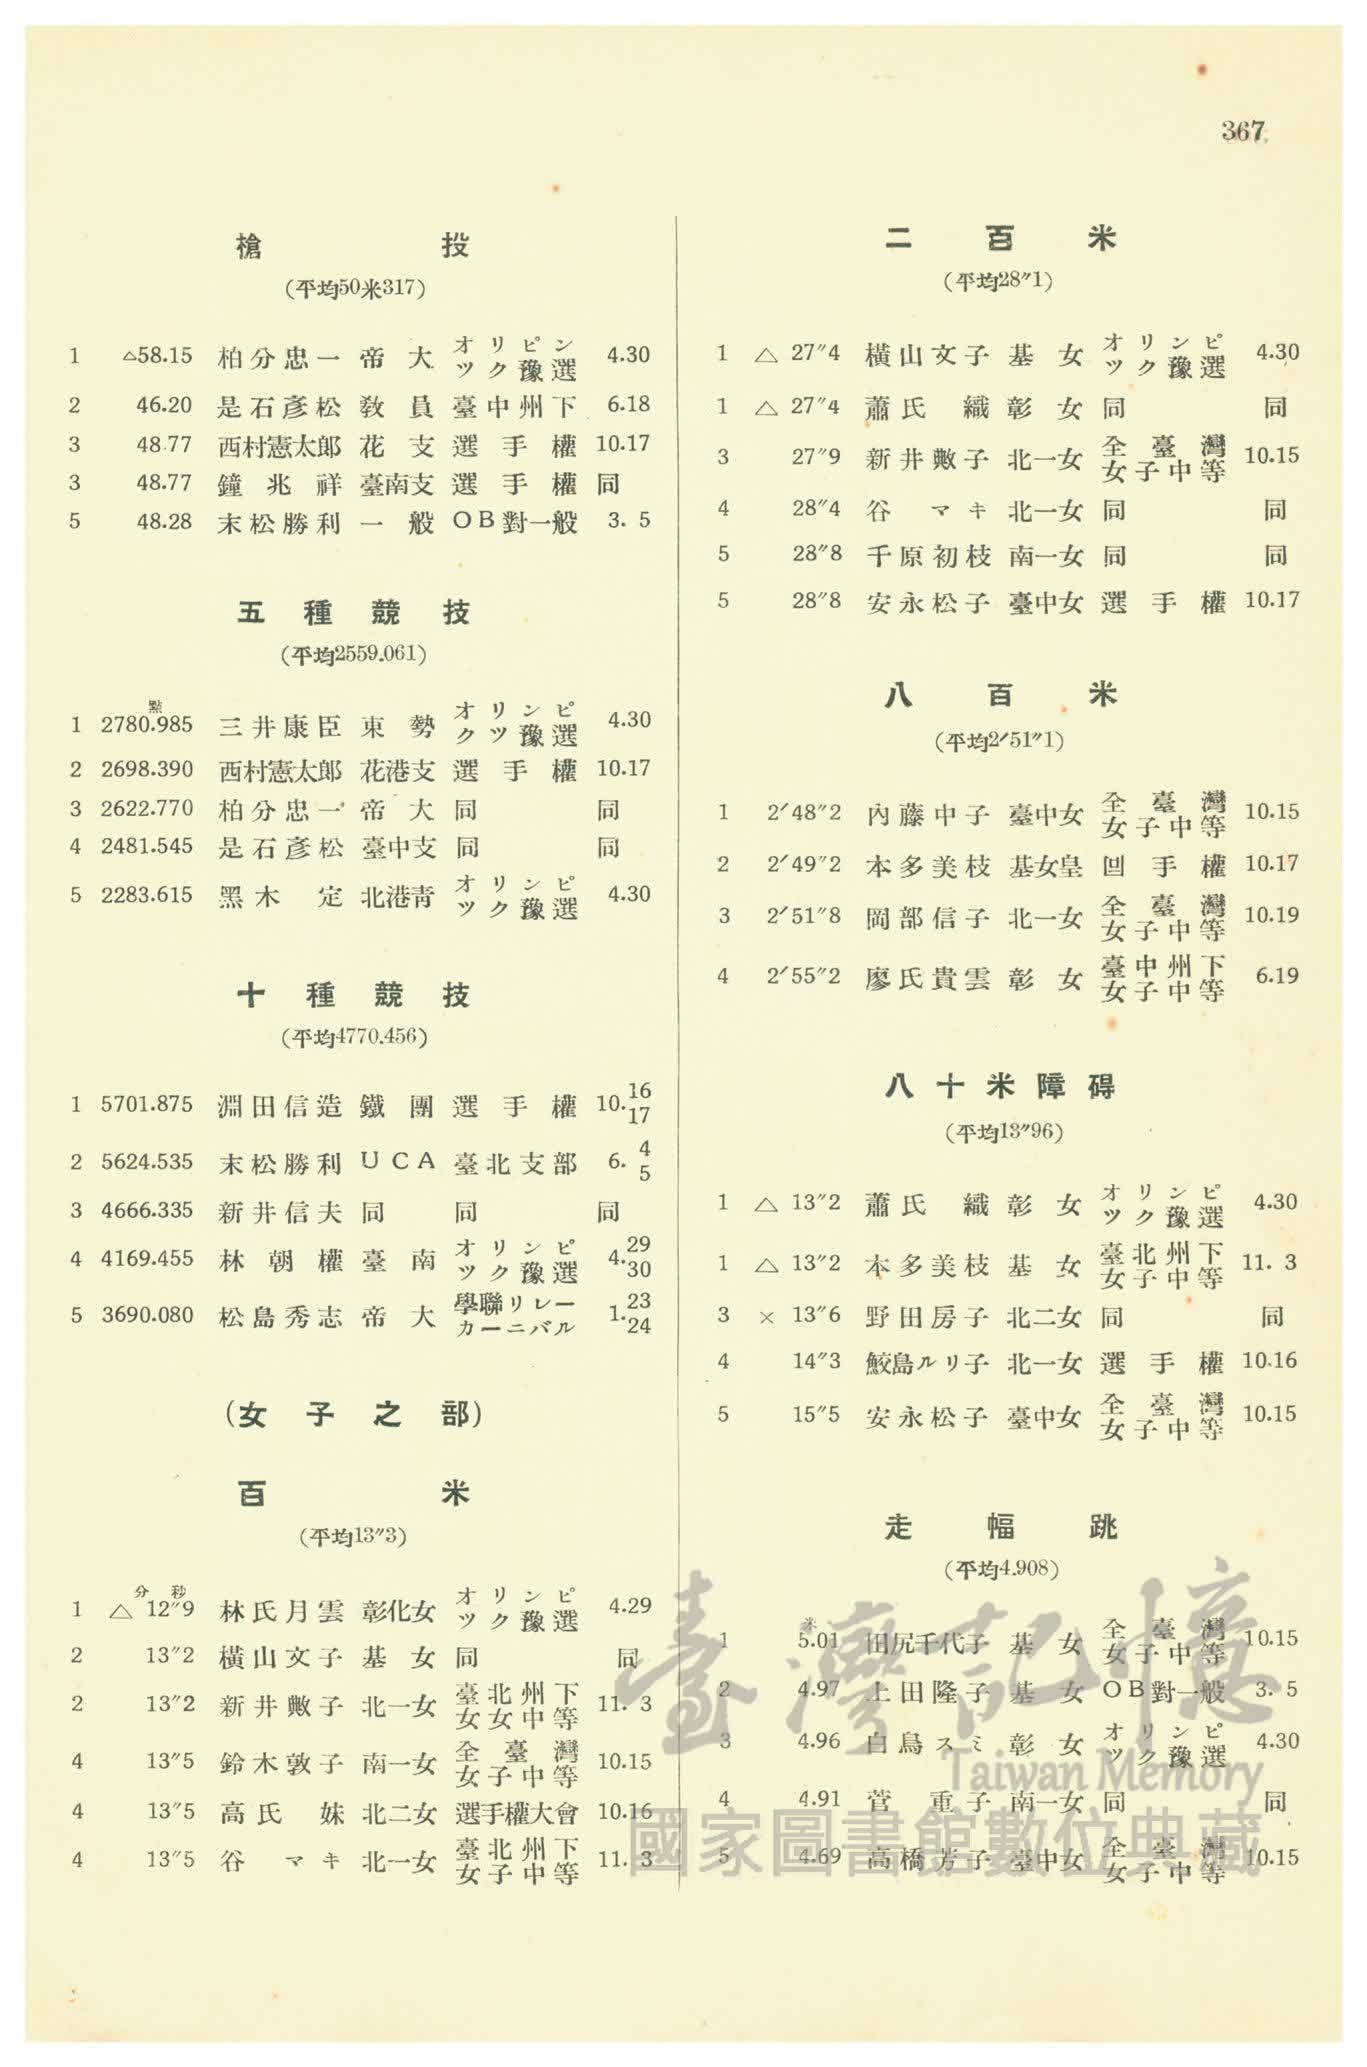 367
槍投
(平均50米317)
1 △58.15 柏分忠一 帝大 オリピンツク豫選 4.30
2 46.20 是石彥松 敎員 臺中州下 6.18
3 48.77 西村憲太郞 花支 選手權 10.17
3 48.77 鐘兆祥 臺南支 選手權 同
5 48.28 末松勝利 一般 OB對一般 3.5
五種競技
(平均2559.061)
1 2780.985點 三井康臣 東勢 オリンピクツ豫選 4.30
2 2698.390 西村憲太郞 花港支 選手權 10.17
3 2622.770 柏分忠一 帝大 同 同
4 2481.545 是石彥松 臺中支 同 同
5 2283.615 黑木定 北港靑 オリンピツク豫選 4.30
十種競技
(平均4770.456)
1 5701.875 淵田信造 鐵團 選手權 10.16 17
2 5624.535 末松勝利 UCA 臺北支部 6.4 5
3 4666.335 新井信夫 同 同 同
4 4169.455 林朝權 臺南 オリンピツク豫選 4.29 30
5 3690.080 松島秀志 帝大 學聯リレーカーニバル 1.23 24
(女子之部)
百米
(平均13″3)
1 △ 12分″9秒 林氏月雲 彰化女 オリンピツク豫選 4.29
2 13″2 橫山文子 基女 同 同
2 13″2 新井斅子 北一女 臺北州下女女中等 11.3
4 13″5 鈴木敦子 南一女 全臺灣女子中等 10.15
4 13″5 高氏妹 北二女 選手權大會 10.16
4 13″5 谷マキ 北一女 臺北州下女子中等 11.3
二百米
(平均28″1)
1 △ 27″4 橫山文子 基女 オリンピツク豫選 4.30
1 △ 27″4 蕭氏織 彰女 同 同
3 27″9 新井斅子 北一女 全臺灣女子中等 10.15
4 28″4 谷マキ 北一女 同 同
5 28″8 千原初枝 南一女 同 同
5 28″8 安永松子 臺中女 選手權 10.17
八百米
(平均2′51″1)
1 2′48″2 內藤中子 臺中女 全臺灣女子中等 10.15
2 2′49″2 本多美枝 基女皇 手權 10.17
3 2′51″8 岡部信子 北一女 全臺灣女子中等 10.19
4 2′55″2 廖氏貴雲 彰女 臺中州下女子中等 6.19
八十米障碍
(平均13″96)
1 △ 13″2 蕭氏織 彰女 オリンピツク豫選 4.30
1 △ 13″2 本多美枝 基女 臺北州下女子中等 11.3
3 × 13″6 野田房子 北二女 同 同
4 14″3 鮫島ルリ子 北一女 選手權 10.16
5 15″5 安永松子 臺中女 全臺灣女子中等 10.15
走幅跳
(平均4.908)
1 5.01米 田尻千代子 基女 全臺灣女子中等 10.15
2 4.97 上田隆子 基女 OB對一般 3.5
3 4.96 白鳥スミ 彰女 オリンピツク豫選 4.30
4 4.91 菅重子 南一女 同 同
5 4.69 高橋芳子 臺中女 全臺灣女子中等 10.15
臺灣記憶
Taiwan Memory
國家圖書館數位典藏